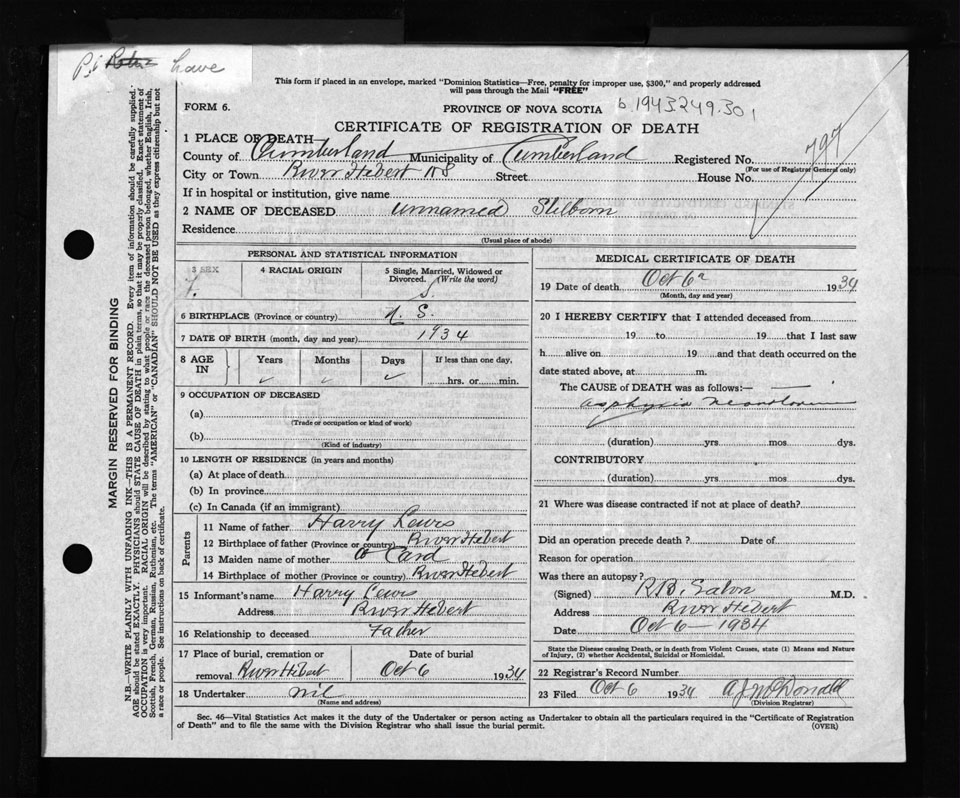 Lowe
This form if placed in an envelope, marked "Dominion Statistics—Free, penalty for improper use, $300," and properly addressed
will pass through the Mail "FREE"
FORM 6.
PROVINCE OF NOVA SCOTIA b.1943249.30 1
CERTIFICATE OF REGISTRATION OF DEATH
1 PLACE OF DEATH
County of Cumberland Municipality of Cumberland Registered No. 797
(For use of Registrar General only)
City or Town River Hebert NS Street House No.
If in hospital or institution, give name
2 NAME OF DECEASED unnamed Stilborn
Residence
(Usual place of abode)
PERSONAL AND STATISTICAL INFORMATION
3 SEX 4 RACIAL ORIGIN 5 Single, Married, Widowed or
Divorced. (Write the word)
f. S.
6 BIRTHPLACE (Province or country) N. S.
7 DATE OF BIRTH (month, day and year) 1934
8 AGE IN Years Months Days If less than one day,
hrs. or min.
9 OCCUPATION OF DECEASED
(a)
(Trade or occupation or kind of work)
(b)
(Kind of industry)
10 LENGTH OF RESIDENCE (in years and months)
(a) At place of death
(b) In province
(c) In Canada (if an immigrant)
Parents
11 Name of father Harry Lewis
12 Birthplace of father (Province or country) River Hebert
13 Maiden name of mother Card
14 Birthplace of mother (Province or country) River Hebert
15 Informant's name Harry Lewis
Address River Hebert
16 Relationship to deceased Father
17 Place of burial, cremation or Date of burial
removal River Hebert Oct 6 1934
18 Undertaker nil
(Name and address)
MEDICAL CERTIFICATE OF DEATH
19 Date of death Oct 6 1934
(Month, day and year)
20 I HEREBY CERTIFY that I attended deceased from
19 to 19 that I last saw
h alive on 19 and that death occurred on the
date stated above, at m.
The CAUSE OF DEATH was as follows:—
asphyxia neonatorum
(duration) yrs mos dys.
CONTRIBUTORY
(duration) yrs mos dys.
21 Where was disease contracted if not at place of death?
Did an operation precede death ? Date of
Reason for operation
Was there an autopsy?
(Signed) R.B. Eaton M.D.
Address River Hebert
Date Oct 6 — 1934
State the Disease causing Death, or in death from Violent Causes, state (1) Means and Nature
of Injury, (2) whether Accidental, Suicidal or Homicidal.
22 Registrar's Record Number
23 Filed Oct 6 1934 A J McDonald
(Division Registrar)
Sec. 46—Vital Statistics Act makes it the duty of the Undertaker or person acting as Undertaker to obtain all the particulars required in the "Certificate of Registration
of Death" and to file the same with the Division Registrar who shall issue the burial permit. (OVER)
MARGIN RESERVED FOR BINDING
N.B.—WRITE PLAINLY WITH UNFADING INK—THIS IS A PERMANENT RECORD. Every item of information should be carefully supplied.
AGE should be stated EXACTLY. PHYSICIANS should STATE CAUSE OF DEATH in plain terms, so that it may be properly classified. Exact statement of
OCCUPATION is very important. RACIAL ORIGIN will be described by stating to what people or race the deceased person belonged, whether English, Irish,
Scottish, French, German, Russian, Ruthenian, etc. The terms "AMERICAN" or "CANADIAN" SHOULD NOT BE USED as they express citizenship but not
a race or people. See instructions on back of certificate.